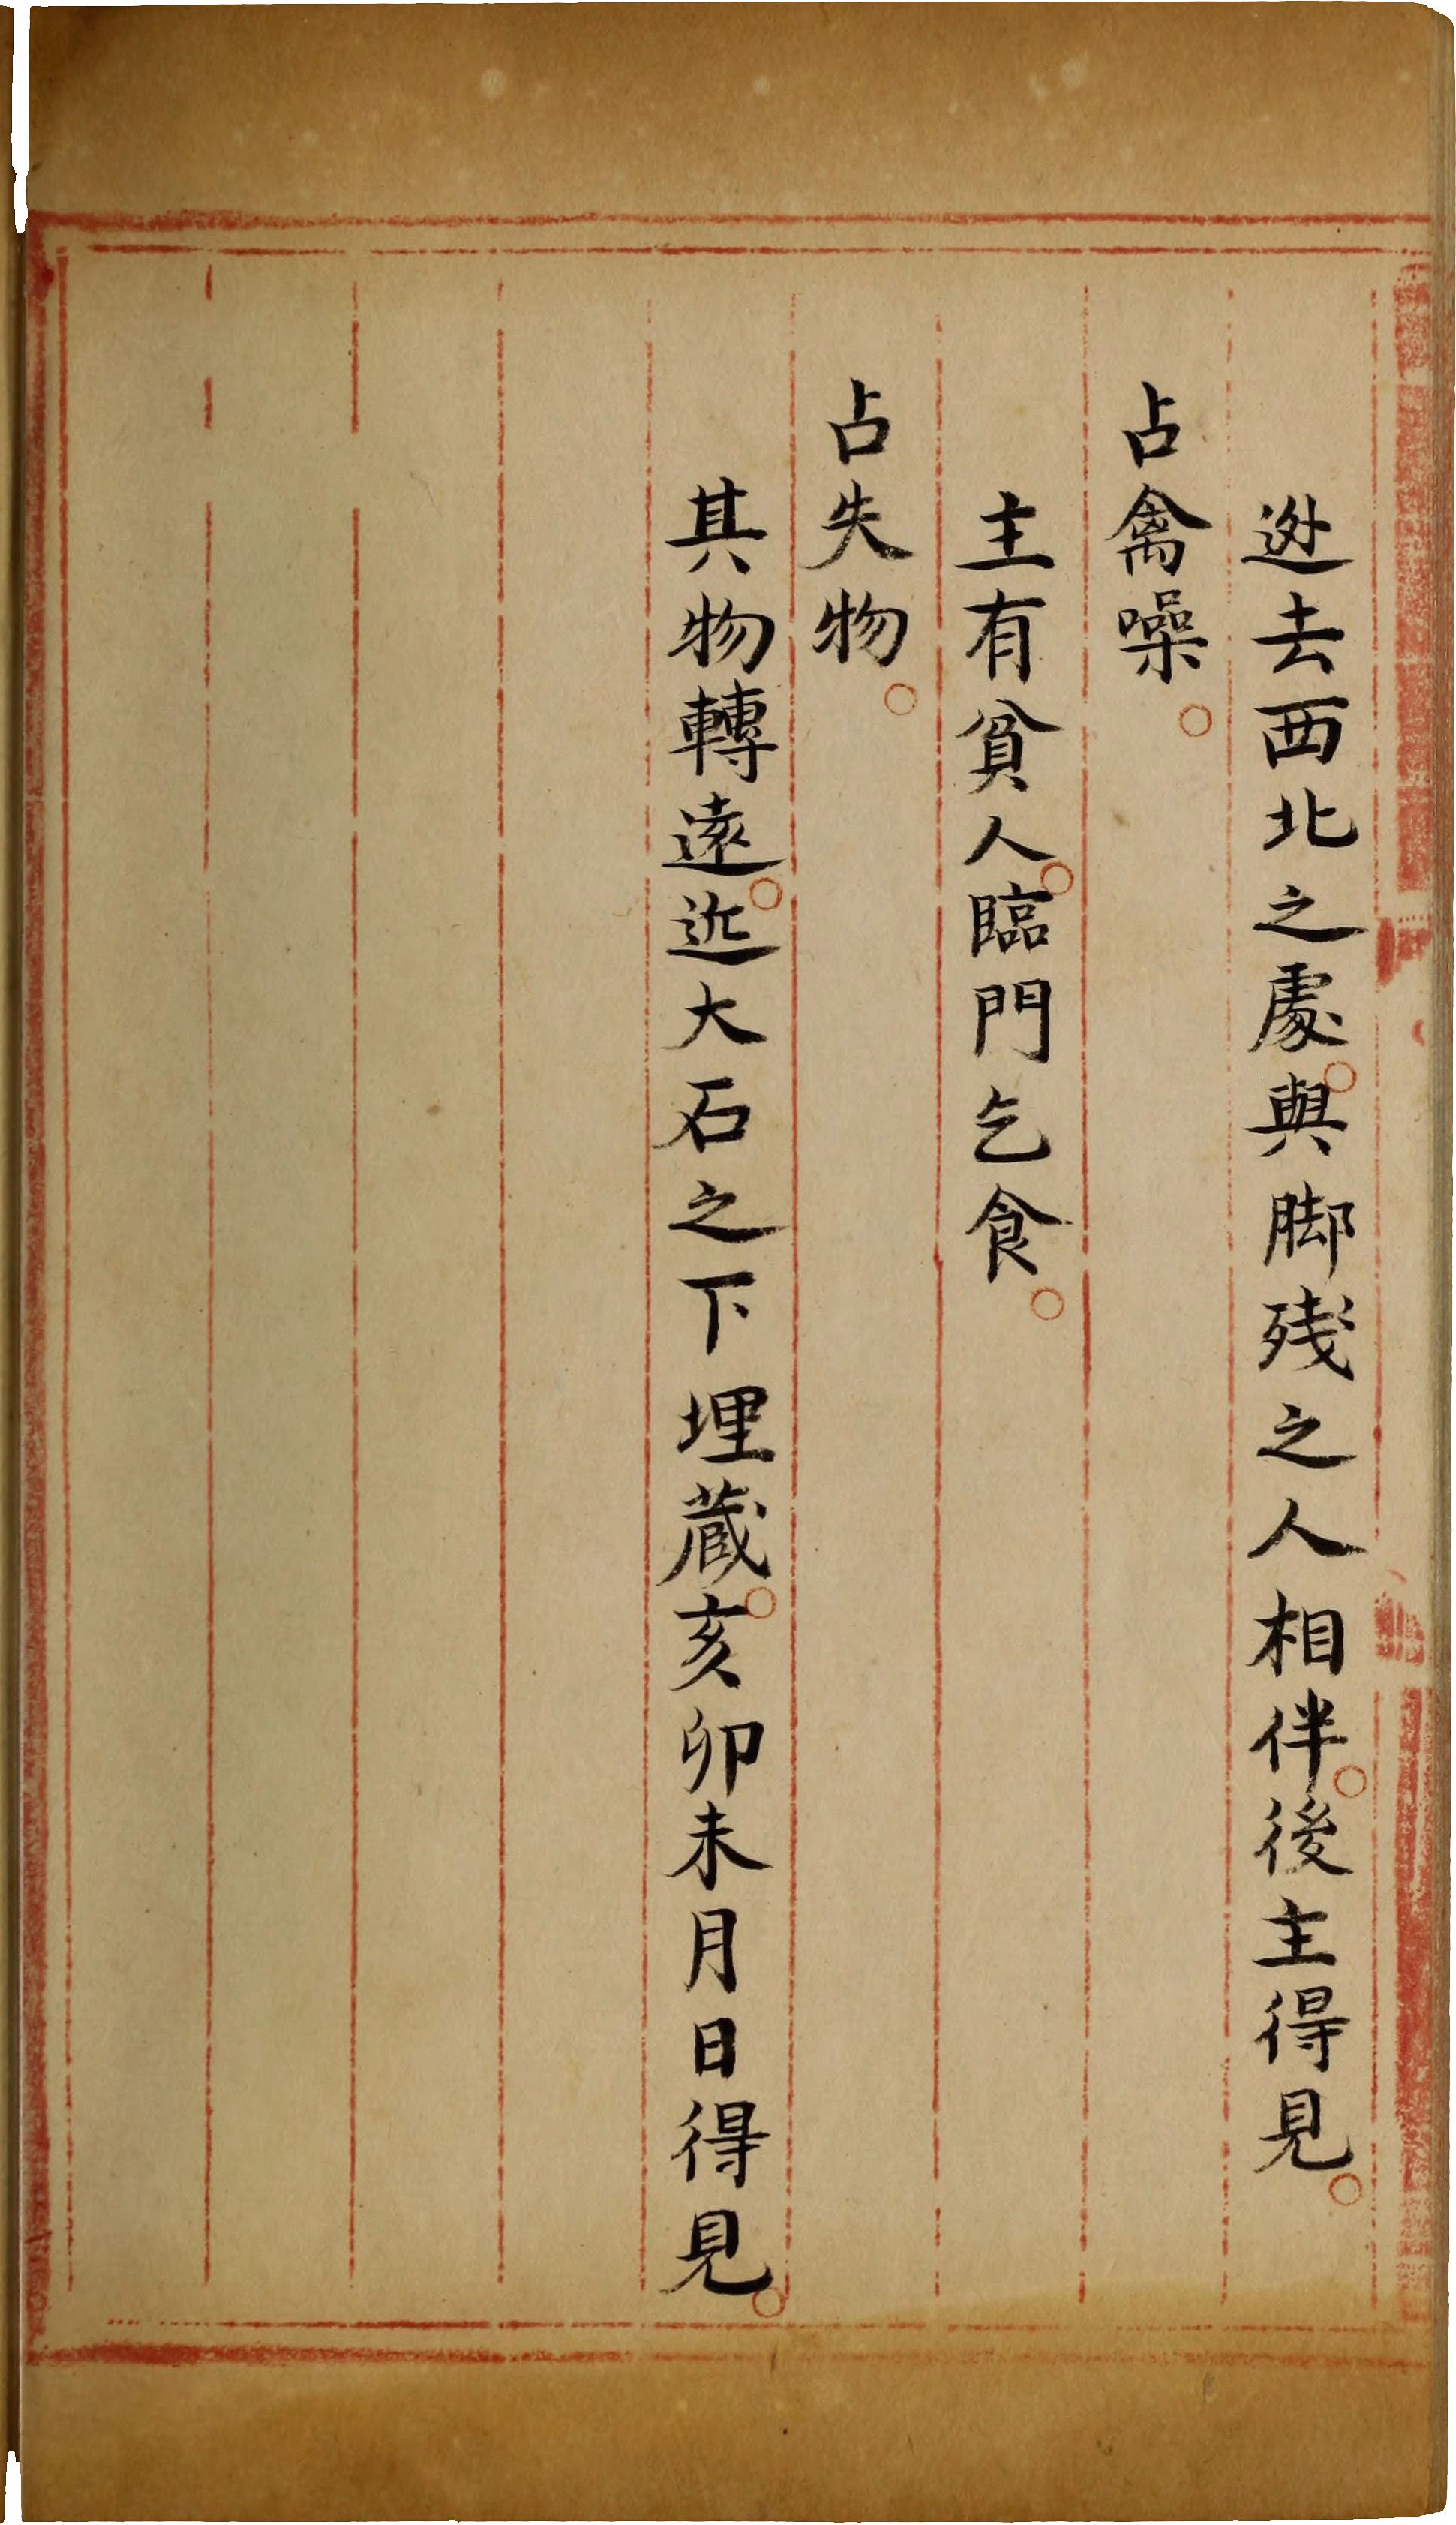 迯去西北之處。與脚残之人相伴。後主得見。
占禽噪。
主有貧人。臨門乞食。
占失物。
其物轉遠。近大石之下埋蔵。亥卯未月日得見。